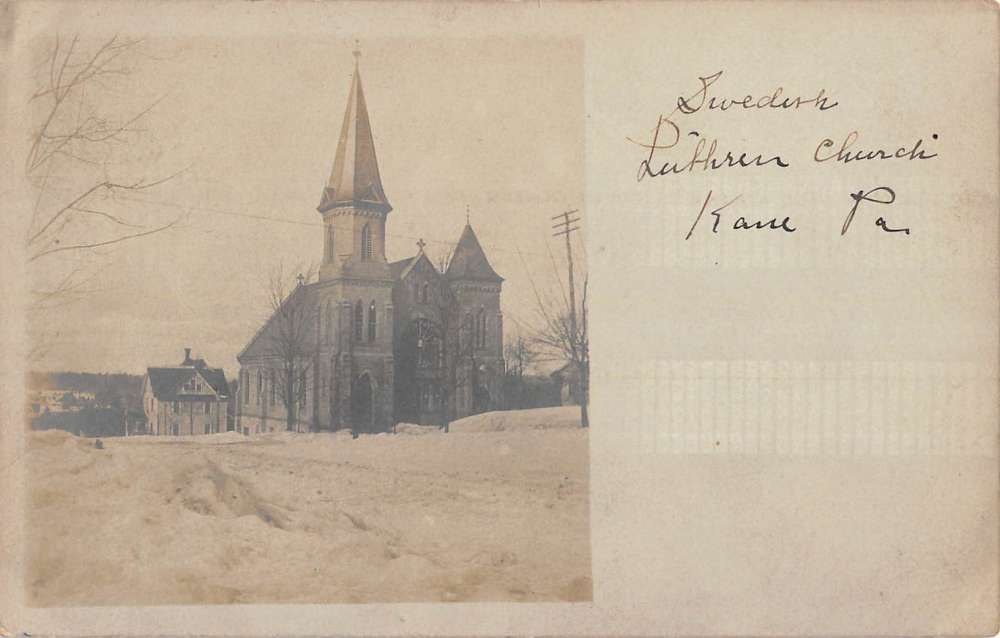 Swedish
Luthren Church
Kane Pa.